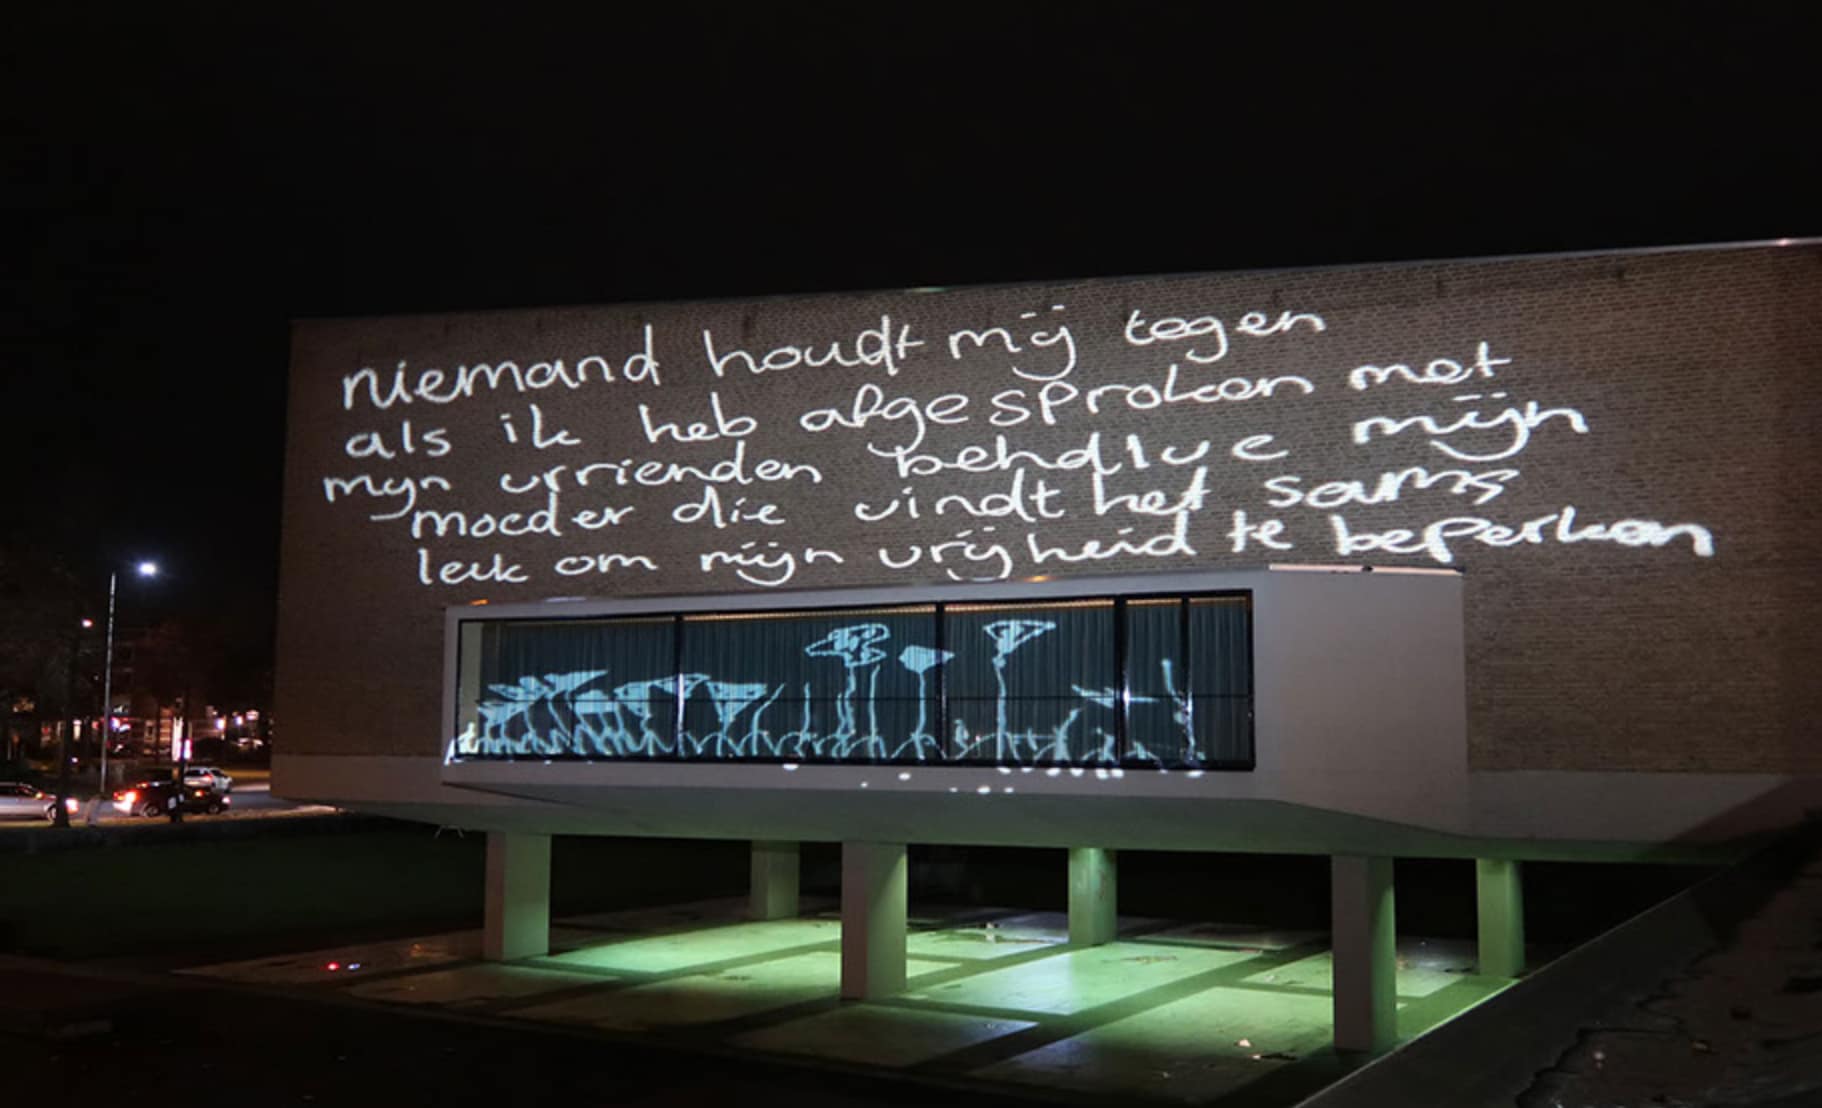 niemand houdt mij tegen
als ik heb afgesproken met
mijn vrrienden behdlve mijn
moeder die vindt het soms
leuk om mijn vrijheid te beperken